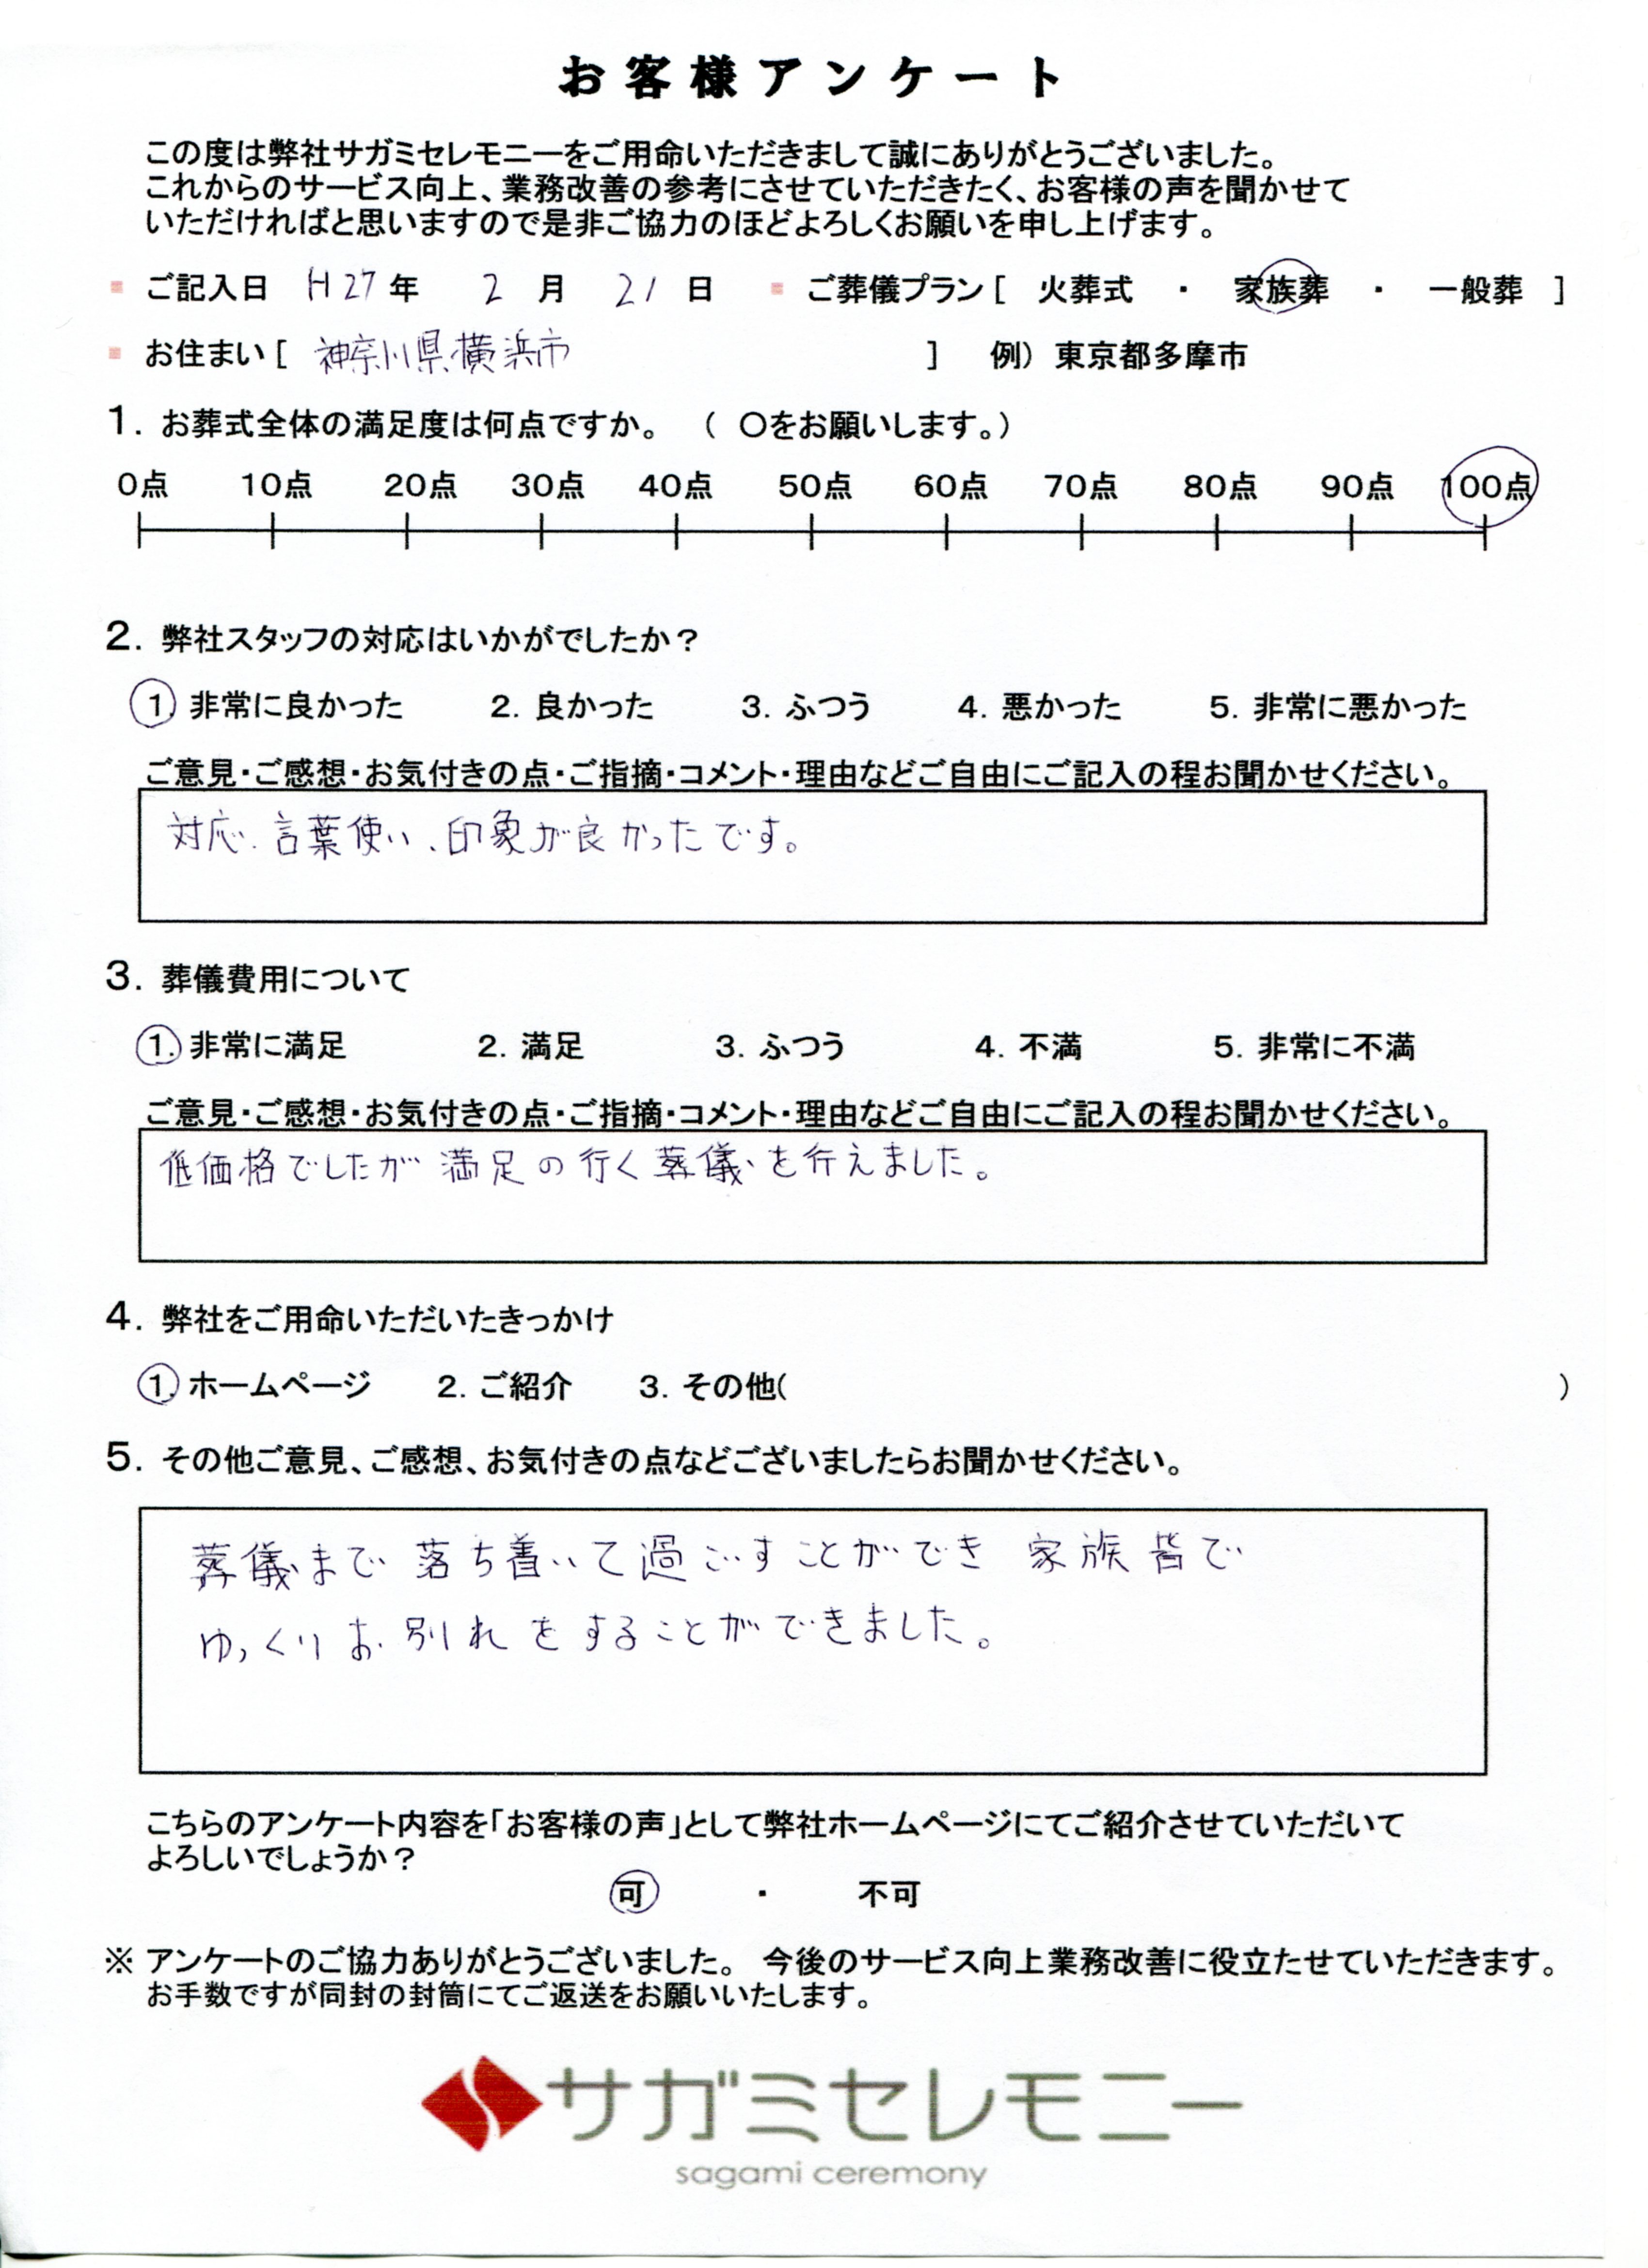 お客様アンケート
この度は弊社サガミセレモニーをご用命いただきまして誠にありがとうございました。
これからのサービス向上、業務改善の参考にさせていただきたく、お客様の声を聞かせて
いただければと思いますので是非ご協力のほどよろしくお願いを申し上げます。
ご記入日 H27年 2月 21日 ご葬儀プラン[ 火葬式 ・ 家族葬 ・ 一般葬 ]
お住まい[ 神奈川県横浜市 ] 例) 東京都多摩市
1. お葬式全体の満足度は何点ですか。 ( 〇をお願いします。)
0点 10点 20点 30点 40点 50点 60点 70点 80点 90点 100点
2. 弊社スタッフの対応はいかがでしたか?
1. 非常に良かった 2. 良かった 3. ふつう 4. 悪かった 5. 非常に悪かった
ご意見・ご感想・お気付きの点・ご指摘・コメント・理由などご自由にご記入の程お聞かせください。
対応、言葉使い、印象が良かったです。
3. 葬儀費用について
1. 非常に満足 2. 満足 3. ふつう 4. 不満 5. 非常に不満
ご意見・ご感想・お気付きの点・ご指摘・コメント・理由などご自由にご記入の程お聞かせください。
低価格でしたが満足の行く葬儀を行えました。
4. 弊社をご用命いただいたきっかけ
1. ホームページ 2. ご紹介 3. その他( )
5. その他ご意見、ご感想、お気付きの点などございましたらお聞かせください。
葬儀まで落ち着いて過ごすことができ 家族皆で
ゆっくりお別れをすることができました。
こちらのアンケート内容を「お客様の声」として弊社ホームページにてご紹介させていただいて
よろしいでしょうか?
可 ・ 不可
※ アンケートのご協力ありがとうございました。 今後のサービス向上業務改善に役立たせていただきます。
お手数ですが同封の封筒にてご返送をお願いいたします。
サガミセレモニー
sagami ceremony